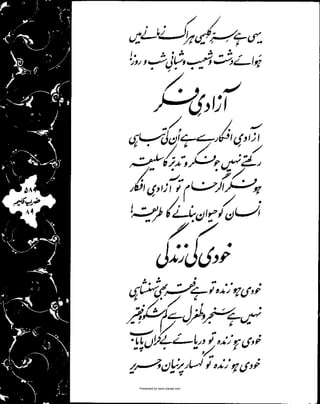 یہی ہے سرِّ کلیمی ہر اک زمانے میں
ہوائے دشت و شعیب و شبانیِ شب و روز!
آزادیِ فکر
آزادیِ افکار سے ہے اُن کی تباہی
رکھتے نہیں جو فکر و تدبّر کا سلیقہ
ہو فکر اگر خام تو آزادیِ افکار
انسان کو حیوان بنانے کا طریقہ!
خودی کی زندگی
خودی ہو زندہ تو ہے فقر بھی شہنشاہی
نہیں ہے سنجر و طغرل سے کم شکوہِ فقیر
خودی ہو زندہ تو دریائے بے کراں پایاب
خودی ہو زندہ تو کہسار پرنیان و حریر
۵۸۹
ضربِ کلیم
۸۹